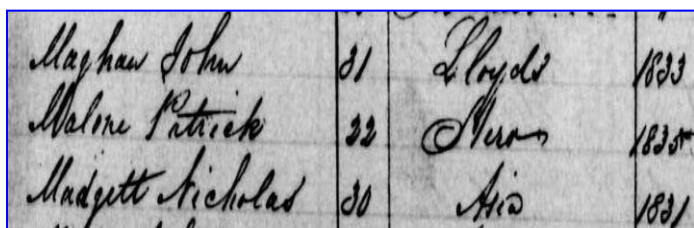 Maghan John 31 Lloyds 1833
Malone Patrick 22 Hero 1835
Madgett Nicholas 30 Asia 1831